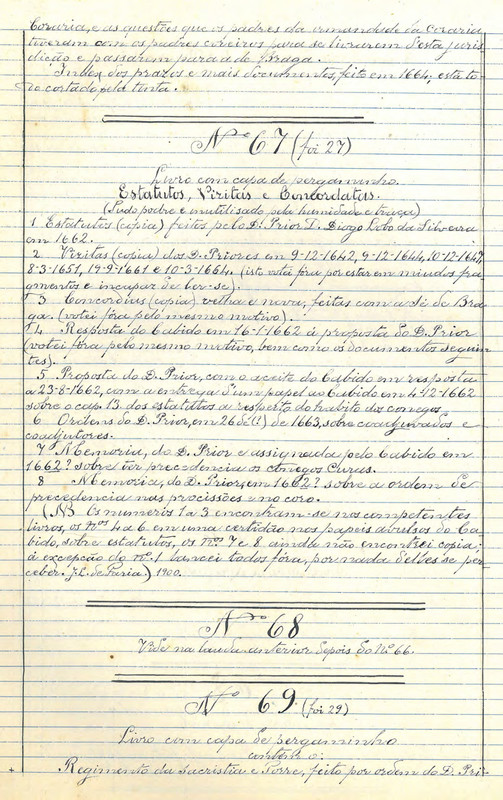 Coraria, e as questões que os padres da irmandade da Coraria
tiveram com os padres coreiros para se livrarem d'esta juris
dicção e passarem para a de Braga.
Index dos prazos e mais documentos, feito em 1664; está to
do cortado pela tinta.
Nº 67 (foi 27)
Livro com capa de pergaminho.
Estatutos, Visitas e Concordatas.
(Tudo podre e inutilisado pela humidade e traça)
1 Estatutos (copia) feitos pelo D. Prior D. Diogo Lobo da Silveira
em 1662.
2 Visitas (copia) dos D. Priores em 9-12-1642, 9-12-1644, 10-12-1647,
8-3-1651, 19-9-1661 e 10-3-1664. (isto votei fóra por estar em miudos fra
gmentos e incapaz de ler-se).
3 Concordias (copia) velha e nova, feitas com a Sé de Bra
ga. (votei fóra pelo mesmo motivo).
4 Resposta do Cabido em 16-1-1662 á proposta do D. Prior
(votei fóra pelo mesmo motivo, bem como os documentos seguin
tes).
5 Proposta do D. Prior, com o aceite do Cabido em resposta
a 23-8-1662, com a entrega d'um papel ao Cabido em 4-12-1662
sobre o cap. 13 dos estatutos a respeito do habito dos conegos.
6 Ordens do D. Prior, em 26 de (!) de 1663, sobre coadjuvados e
coadjutores.
7 Memoria, do D. Prior e assignada pelo Cabido em
1662? sobre ter precedencia os conegos Curas.
8 Memoria, do D. Prior, em 1662? sobre a ordem de
precedencia nas procissões e no coro.
(NB Os numeros 1 a 3 encontram-se nos competentes
livros, os nºs 4 a 6 em uma certidão nos papeis avulsos do Ca
bido, sobre estatutos, os nºs 7 e 8 ainda não encontrei copia;
á excepção do nº 1 lancei todos fóra, por nada d'elles se per
ceber. J.L. de Faria) 1900.
Nº 68
Vide na lauda anterior depois do Nº 66.
Nº 69 (foi 29)
Livro com capa de pergaminho
contendo:
Regimento da sacristia e Torre, feito por ordem do D. Pri-